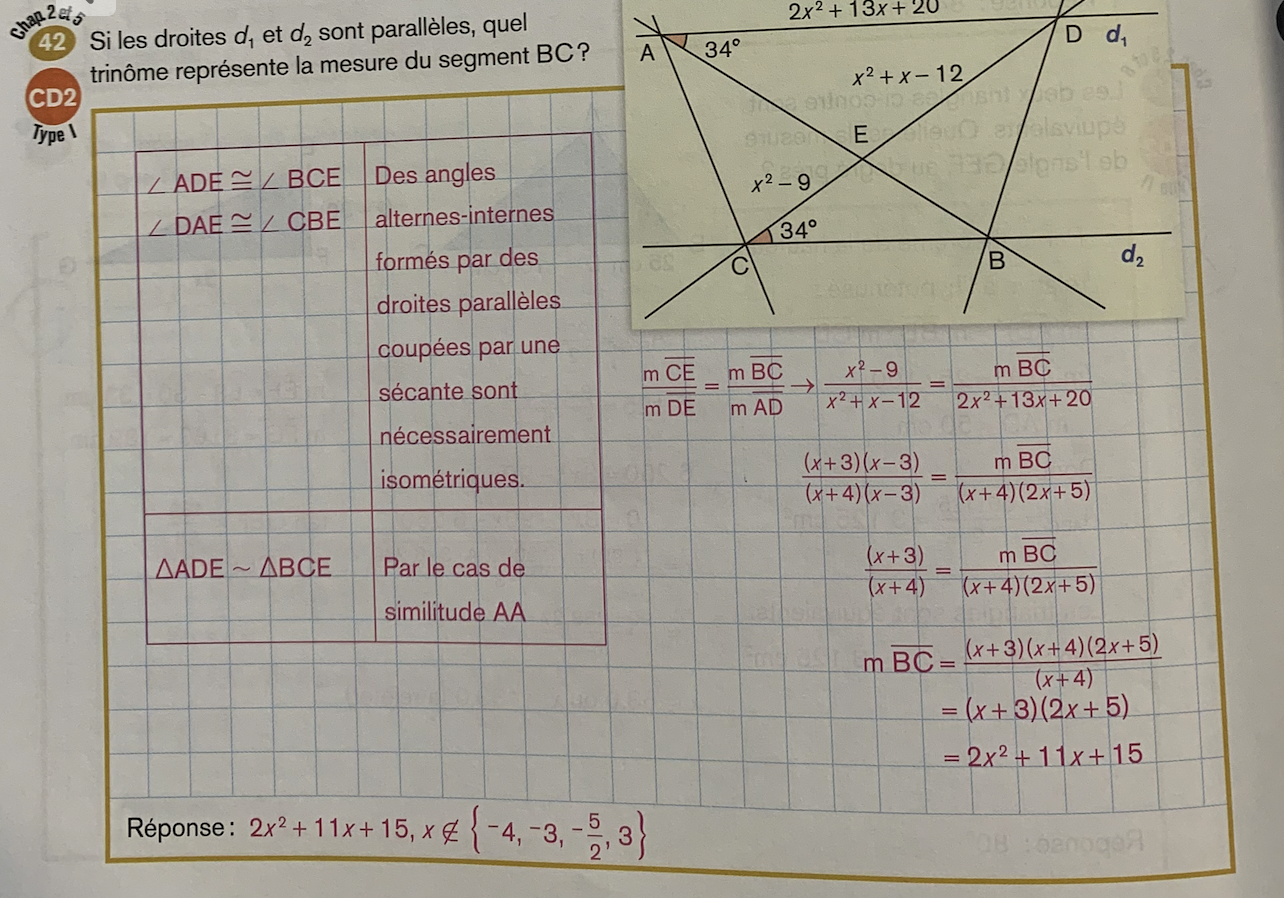 Chap. 2 et 5
42
Si les droites d₁ et d₂ sont parallèles, quel
trinôme représente la mesure du segment BC ?
CD2
Type I
2x² + 13x + 20
A
34°
D
d₁
x² + x − 12
E
x² − 9
34°
C
B
d₂
∠ ADE ≅ ∠ BCE
∠ DAE ≅ ∠ CBE
Des angles
alternes-internes
formés par des
droites parallèles
coupées par une
sécante sont
nécessairement
isométriques.
△ADE ~ △BCE
Par le cas de
similitude AA
m C̅E̅ / m D̅E̅ = m B̅C̅ / m A̅D̅ → (x² − 9) / (x² + x − 12) = m B̅C̅ / (2x² + 13x + 20)
(x + 3)(x − 3) / (x + 4)(x − 3) = m B̅C̅ / (x + 4)(2x + 5)
(x + 3) / (x + 4) = m B̅C̅ / (x + 4)(2x + 5)
m B̅C̅ = (x + 3)(x + 4)(2x + 5) / (x + 4)
= (x + 3)(2x + 5)
= 2x² + 11x + 15
Réponse : 2x² + 11x + 15, x ∉ {⁻4, ⁻3, −5/2, 3}